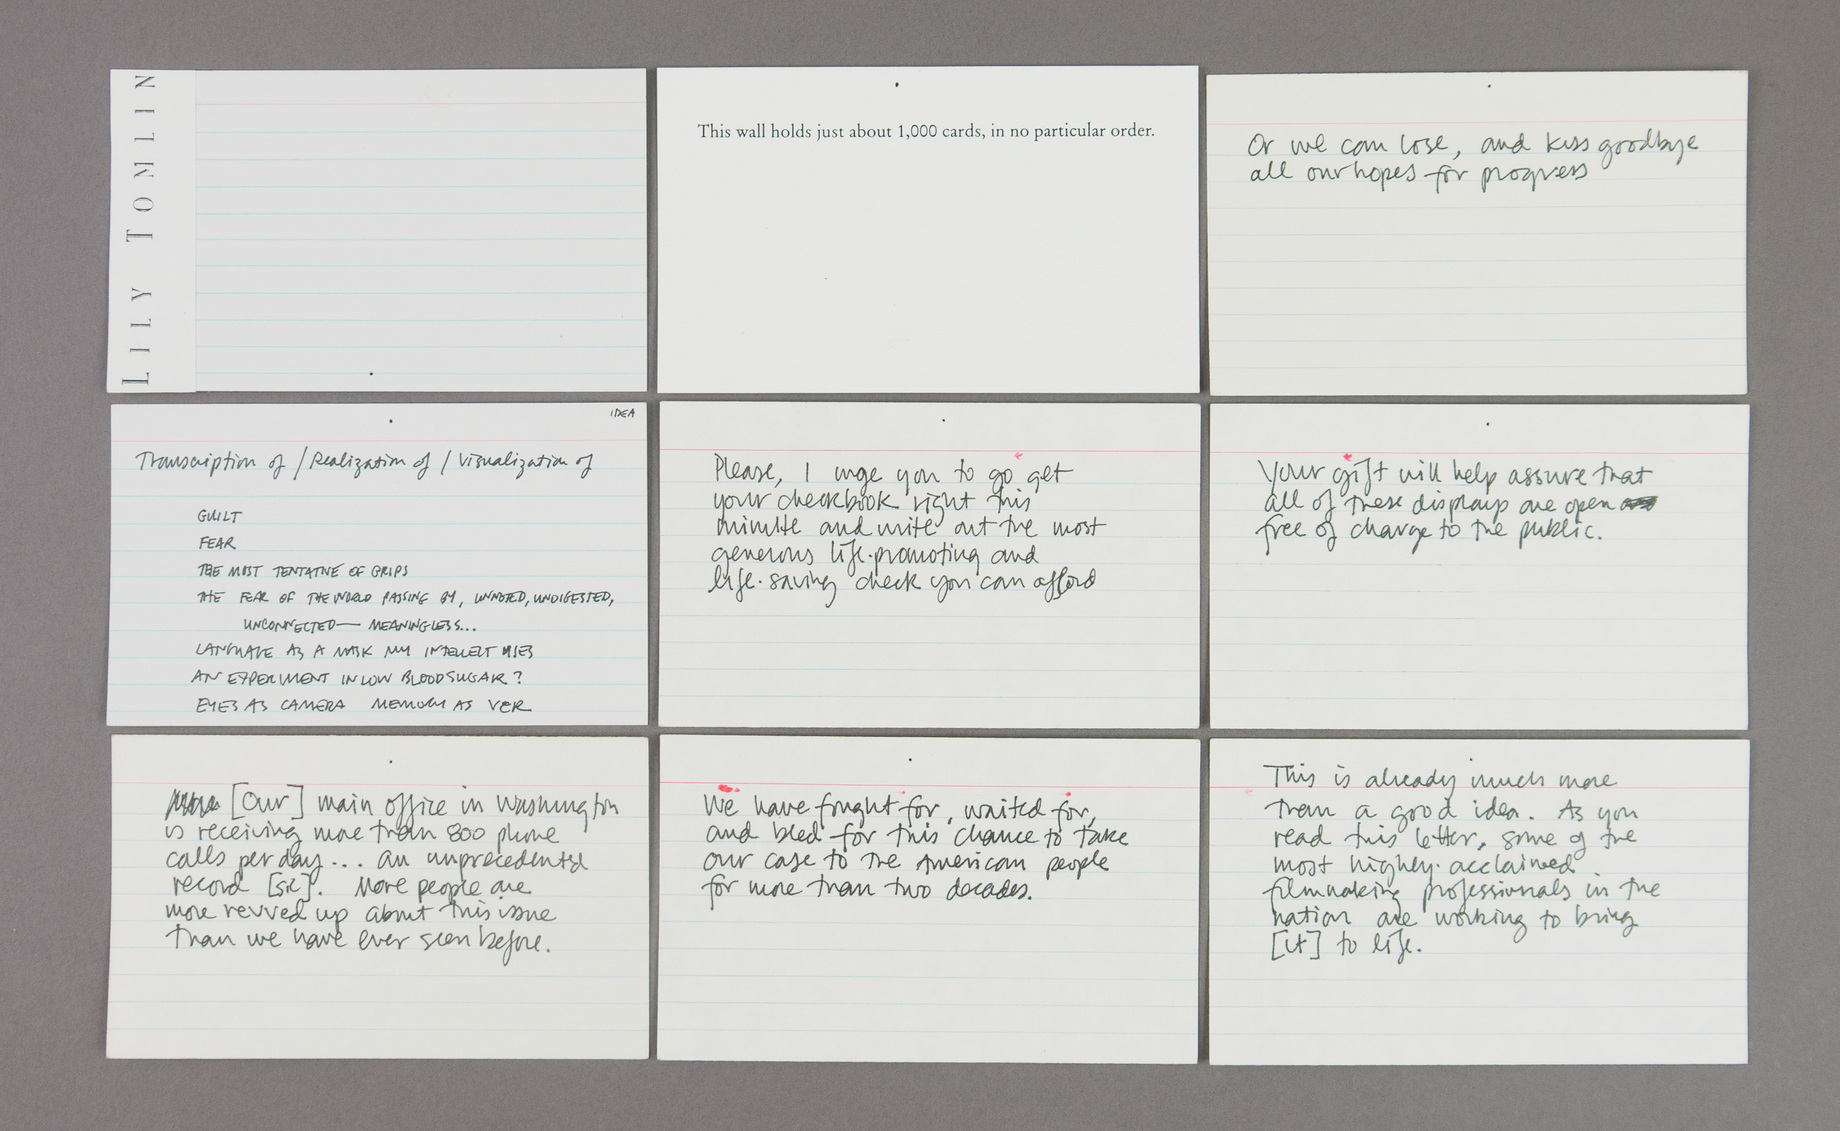 LILY TOMLIN
This wall holds just about 1,000 cards, in no particular order.
Or we can lose, and kiss goodbye
all our hopes for progress
IDEA
Transcription of / Realization of / Visualization of
GUILT
FEAR
THE MOST TENTATIVE OF GRIPS
THE FEAR OF THE WORLD PASSING BY, UNNOTED, UNDIGESTED,
UNCONNECTED — MEANINGLESS...
LANGUAGE AS A MASK MY INTELLECT USES
AN EXPERIMENT IN LOW BLOOD SUGAR?
EYES AS CAMERA MEMORY AS VCR
Please, I urge you to go get
your checkbook right this
minute and write out the most
generous life-promoting and
life-saving check you can afford
Your gift will help assure that
all of these displays are open
free of charge to the public.
[Our] main office in Washington
is receiving more than 800 phone
calls per day... an unprecedented
record [sic]. More people are
more revved up about this issue
than we have ever seen before.
We have fought for, waited for,
and bled for this chance to take
our case to the American people
for more than two decades.
This is already much more
than a good idea. As you
read this letter, some of the
most highly-acclaimed
filmmaking professionals in the
nation are working to bring
[it] to life.